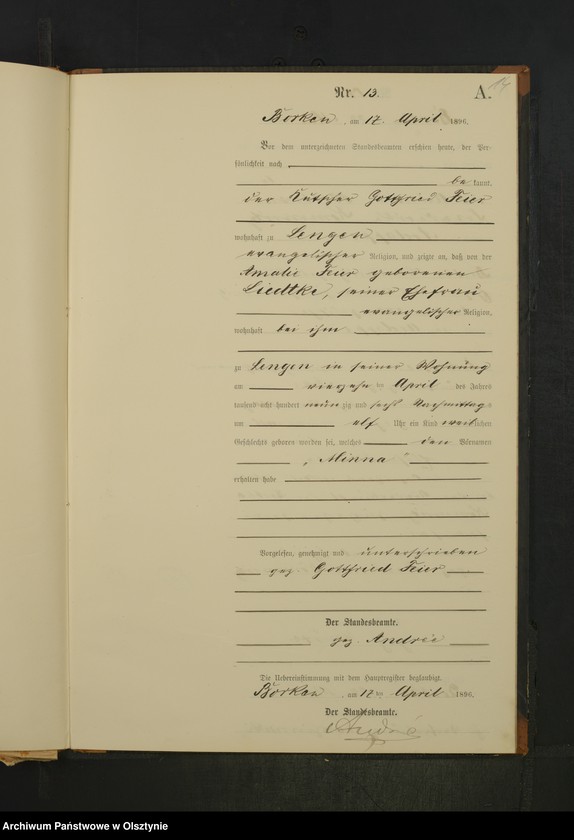 Nr. 13.
A.
Borken, am 17. April 1896.
Vor dem unterzeichneten Standesbeamten erschien heute, der Per-
sönlichkeit nach
be kannt,
der Kutscher Gottfried Feier
wohnhaft zu Lengen
evangelischer Religion, und zeigte an, daß von der
Amalie Feier geborenen
Liedtke, seiner Ehefrau
evangelischer Religion,
wohnhaft bei ihm
zu Lengen in seiner Wohnung
am vierzehn ten April des Jahres
tausend acht hundert neun zig und sechs Nachmittags
um elf Uhr ein Kind weiblichen
Geschlechts geboren worden sei, welches den Vornamen
„Minna“
erhalten habe
Vorgelesen, genehmigt und unterschrieben
gez. Gottfried Feier
Der Standesbeamte.
gez. Andrie
Die Uebereinstimmung mit dem Hauptregister beglaubigt.
Borken, am 17 ten April 1896.
Der Standesbeamte.
Archiwum Państwowe w Olsztynie